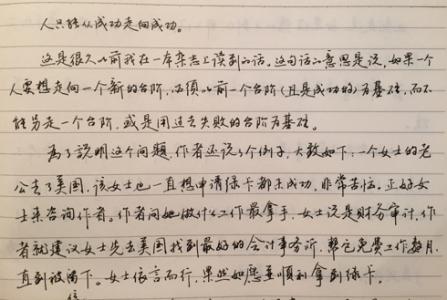 人只能从成功走向成功。
这是很久以前我在一本杂志上读到的话。这句话的意思是说，如果一个
人要想走向一个新的台阶，必须以前一个台阶（且是成功的）为基础，而不
能另走一个台阶，或是用过去失败的台阶为基础。
为了说明这个问题，作者还说了个例子，大致如下：一个女士的老
公去了美国，该女士也一直想申请绿卡都未成功，非常苦恼。正好女
士来咨询作者。作者问她做什么工作最拿手，女士说是财务审计，作
者就建议女士先去美国找到最好的会计事务所，帮它免费工作数月，
直到被留下。女士依言而行，果然如愿并顺利拿到绿卡。